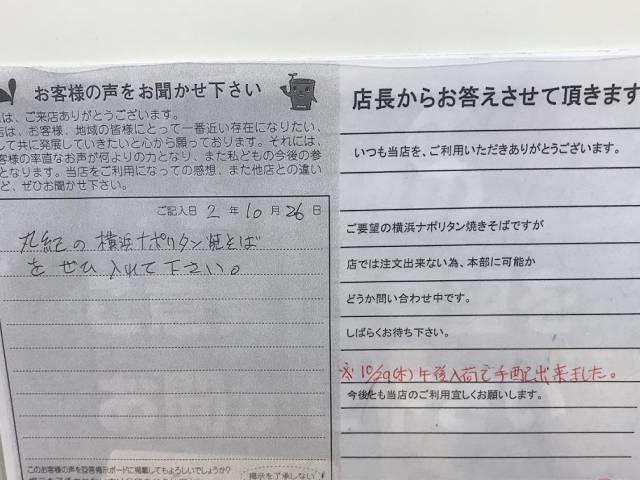 お客様の声をお聞かせ下さい
は、ご来店ありがとうございます。
店は、お客様、地域の皆様にとって一番近い存在になりたい、
して共に発展していきたいと心から願っております。それには、
客様の率直なお声が何よりの力となり、また私どもの今後の参
となります。当店をご利用になっての感想、また他店との違い
ど、ぜひお聞かせ下さい。
ご記入日 2 年 10 月 26 日
丸紀の横浜ナポリタン焼とば
をぜひ入れて下さい。
このお客様の声を回答掲示ボードに掲載してもよろしいでしょうか?
掲示を了承しない
店長からお答えさせて頂きます
いつも当店を、ご利用いただきありがとうございます。
ご要望の横浜ナポリタン焼きそばですが
店では注文出来ない為、本部に可能か
どうか問い合わせ中です。
しばらくお待ち下さい。
※10/29(木)午後入荷で手配出来ました。
今後とも当店のご利用宜しくお願いします。